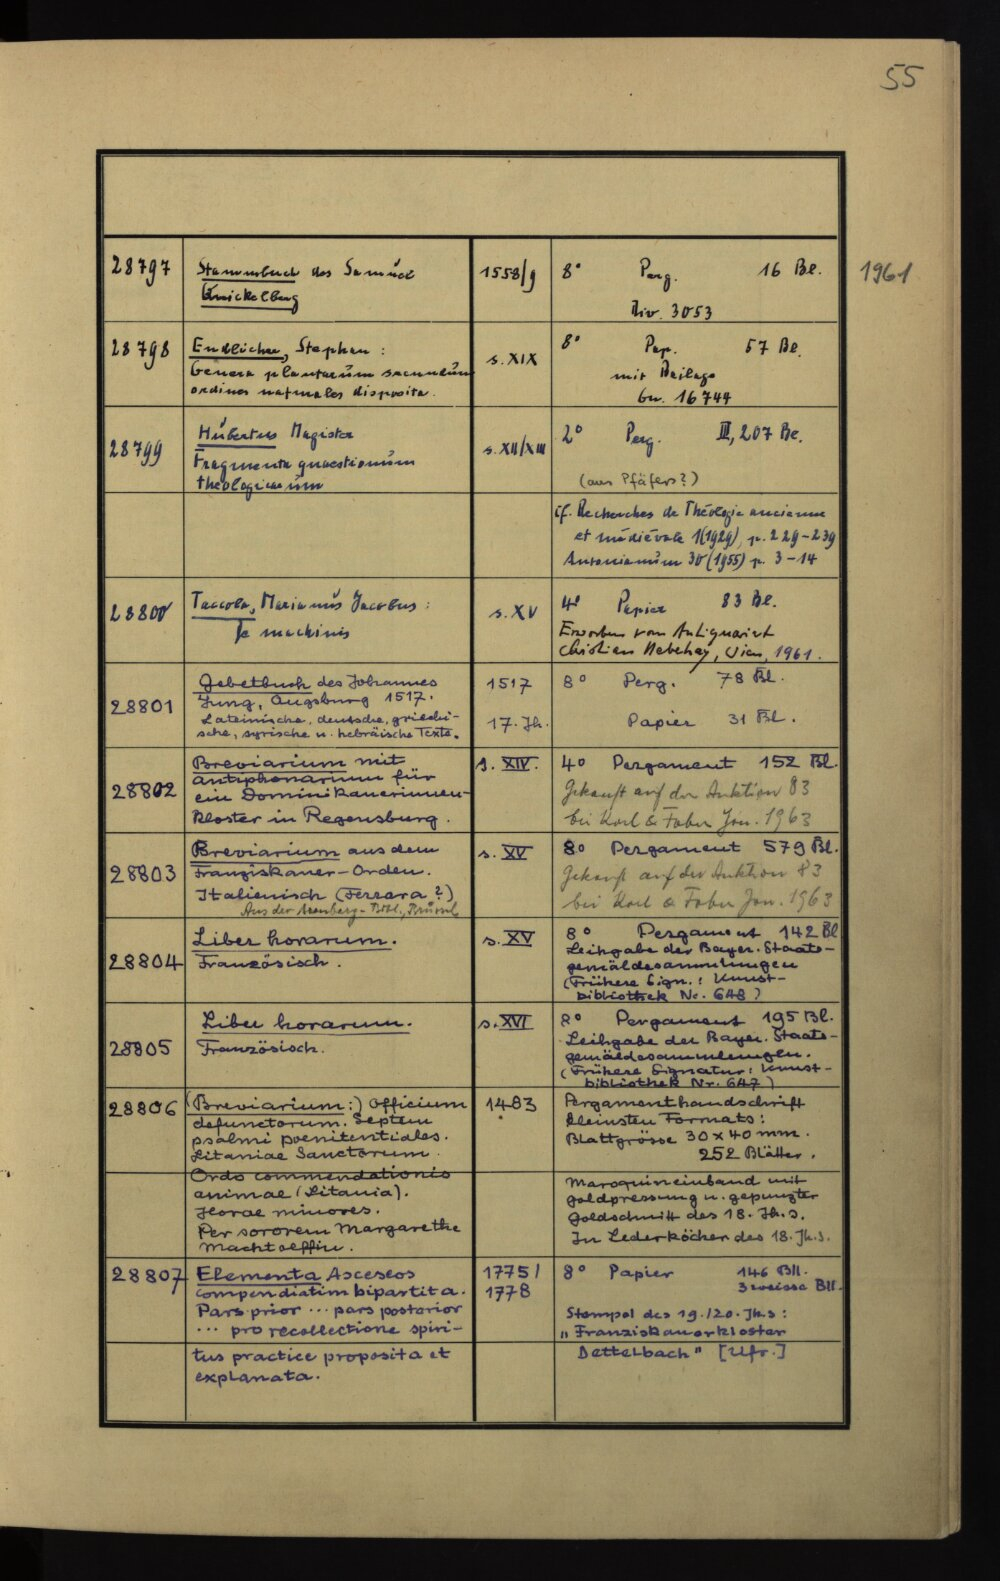 55
28797
Stammbuch des Samuel
Quickelberg
1558/9
8° Perg. 16 Bl.
Div. 3053
1961
28798
Endlicher, Stephan:
Genera plantarum secundum
ordines naturales disposita.
s. XIX
8° Pap. 57 Bl.
mit Beilage
Gw. 16744
28799
Hubertus Magister
Fragmenta quaestionum
theologicarum
s. XII/XIII
2° Perg. III, 207 Bl.
(aus Pfäfers?)
cf. Recherches de Théologie ancienne
et médiévale 1(1929), p. 229-239
Antonianum 30 (1955) p. 3-14
28800
Taccola, Marianus Jacobus:
De machinis
s. XV
4° Papier 83 Bl.
Erworben vom Antiquariat
Christian Nebehay, Wien, 1961.
28801
Gebetbuch des Johannes
Jung, Augsburg 1517.
Lateinische, deutsche, griechi-
sche, syrische u. hebräische Texte.
1517
17. Jh.
8° Perg. 78 Bl.
Papier 31 Bl.
28802
Breviarium mit
Antiphonarium für
ein Dominikanerinnen-
kloster in Regensburg.
s. XIV.
4° Pergament 152 Bl.
Gekauft auf der Auktion 83
bei Karl & Faber Jan. 1963
28803
Breviarium aus dem
Franziskaner-Orden.
Italienisch (Ferrara?)
Aus der Arenberg-Bibl., Brüssel
s. XV
8° Pergament 579 Bl.
Gekauft auf der Auktion 83
bei Karl & Faber Jan. 1963
28804
Liber horarum.
Französisch.
s. XV
8° Pergament 142 Bl
Leihgabe der Bayer. Staats-
gemäldesammlungen
(Frühere Sign.: Kunst-
bibliothek Nr. 648)
28805
Liber horarum.
Französisch.
s. XVI
8° Pergament 195 Bl.
Leihgabe der Bayer. Staats-
gemäldesammlungen.
(Frühere Signatur: Kunst-
bibliothek Nr. 647)
28806
(Breviarium:) Officium
defunctorum. Septem
psalmi poenitentiales.
Litaniae Sanctorum.
Ordo commendationis
animae (Litania).
Horae minores.
Per sororem Margarethe
Machtolffin.
1483
Pergamenthandschrift
kleinsten Formats:
Blattgrösse 30 x 40 mm.
252 Blätter.
Maroquineinband mit
Goldpressung u. gepunzter
Goldschnitt des 18. Jh.s.
In Lederköcher des 18. Jh.s.
28807
Elementa Asceseos
compendiatim bipartita.
Pars prior ... pars posterior
... pro recollectione spiri-
tus practice proposita et
explanata.
1775/
1778
8° Papier 146 Bll.
3 weisse Bll.
Stempel des 19./20. Jh.s:
"Franziskanerkloster
Dettelbach" [Ufr.]